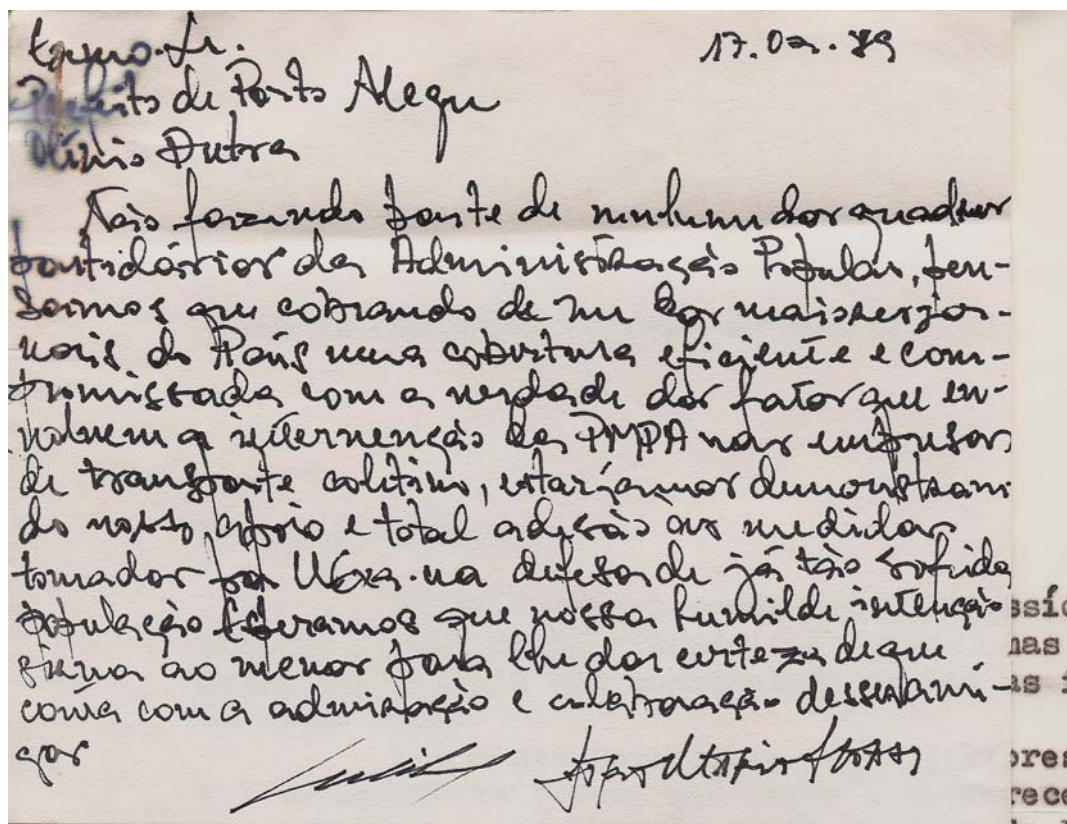 Exmo. Sr.
17.02.89
Prefeito de Porto Alegre
Olívio Dutra
Não fazendo parte de nenhum dos quadros
partidários da Administração Popular, pen-
samos que cobrando de um dos maiores jor-
nais do País uma cobertura eficiente e com-
promissada com a verdade dos fatos que en-
volvem a intervenção da PMPA nas empresas
de transporte coletivo, estaríamos demonstran
do nosso apoio e total adesão as medidas
tomadas por V.Exa. na defesa de já tão sofrida
população. Esperamos que nossa humilde intenção
sirva ao menos para lhe dar certeza de que
conta com a admiração e colaboração desses ami-
gos
ssíd
nas
as
pres
rece